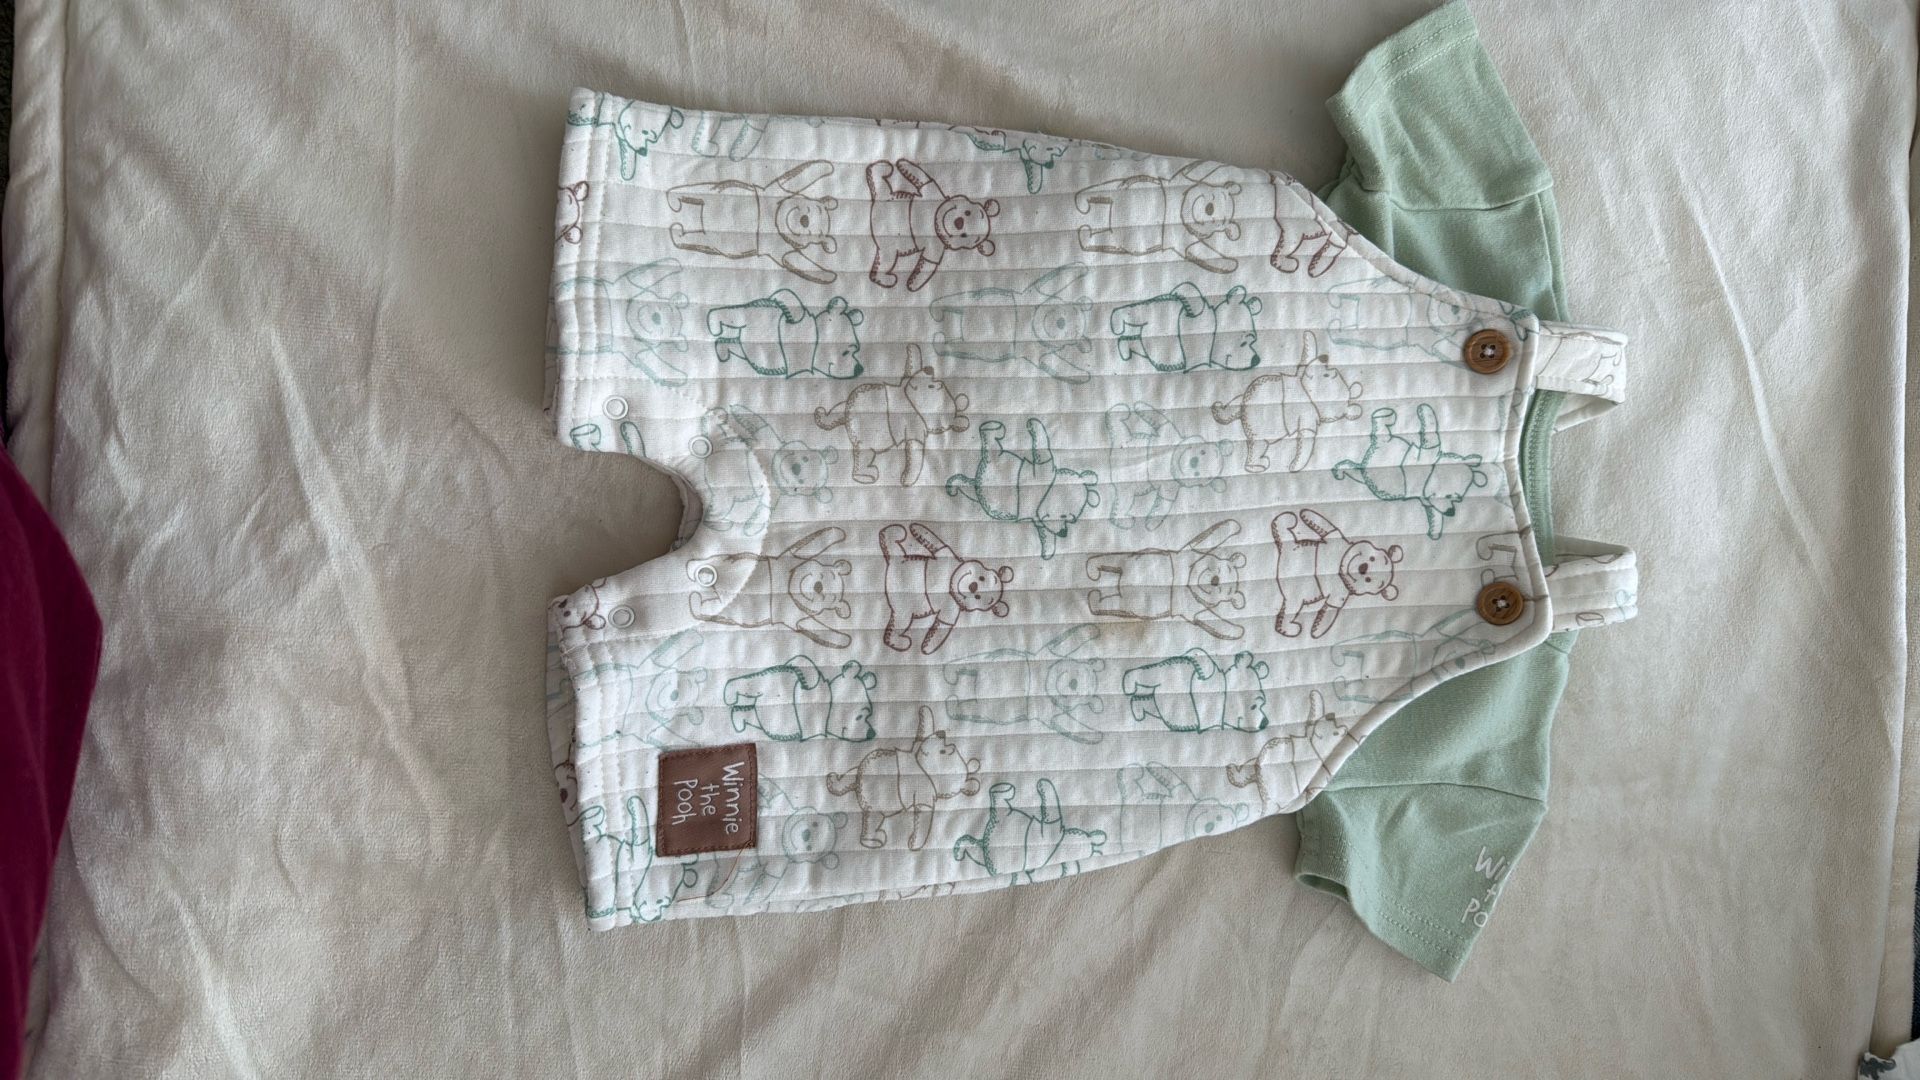 Winnie
the
Pooh